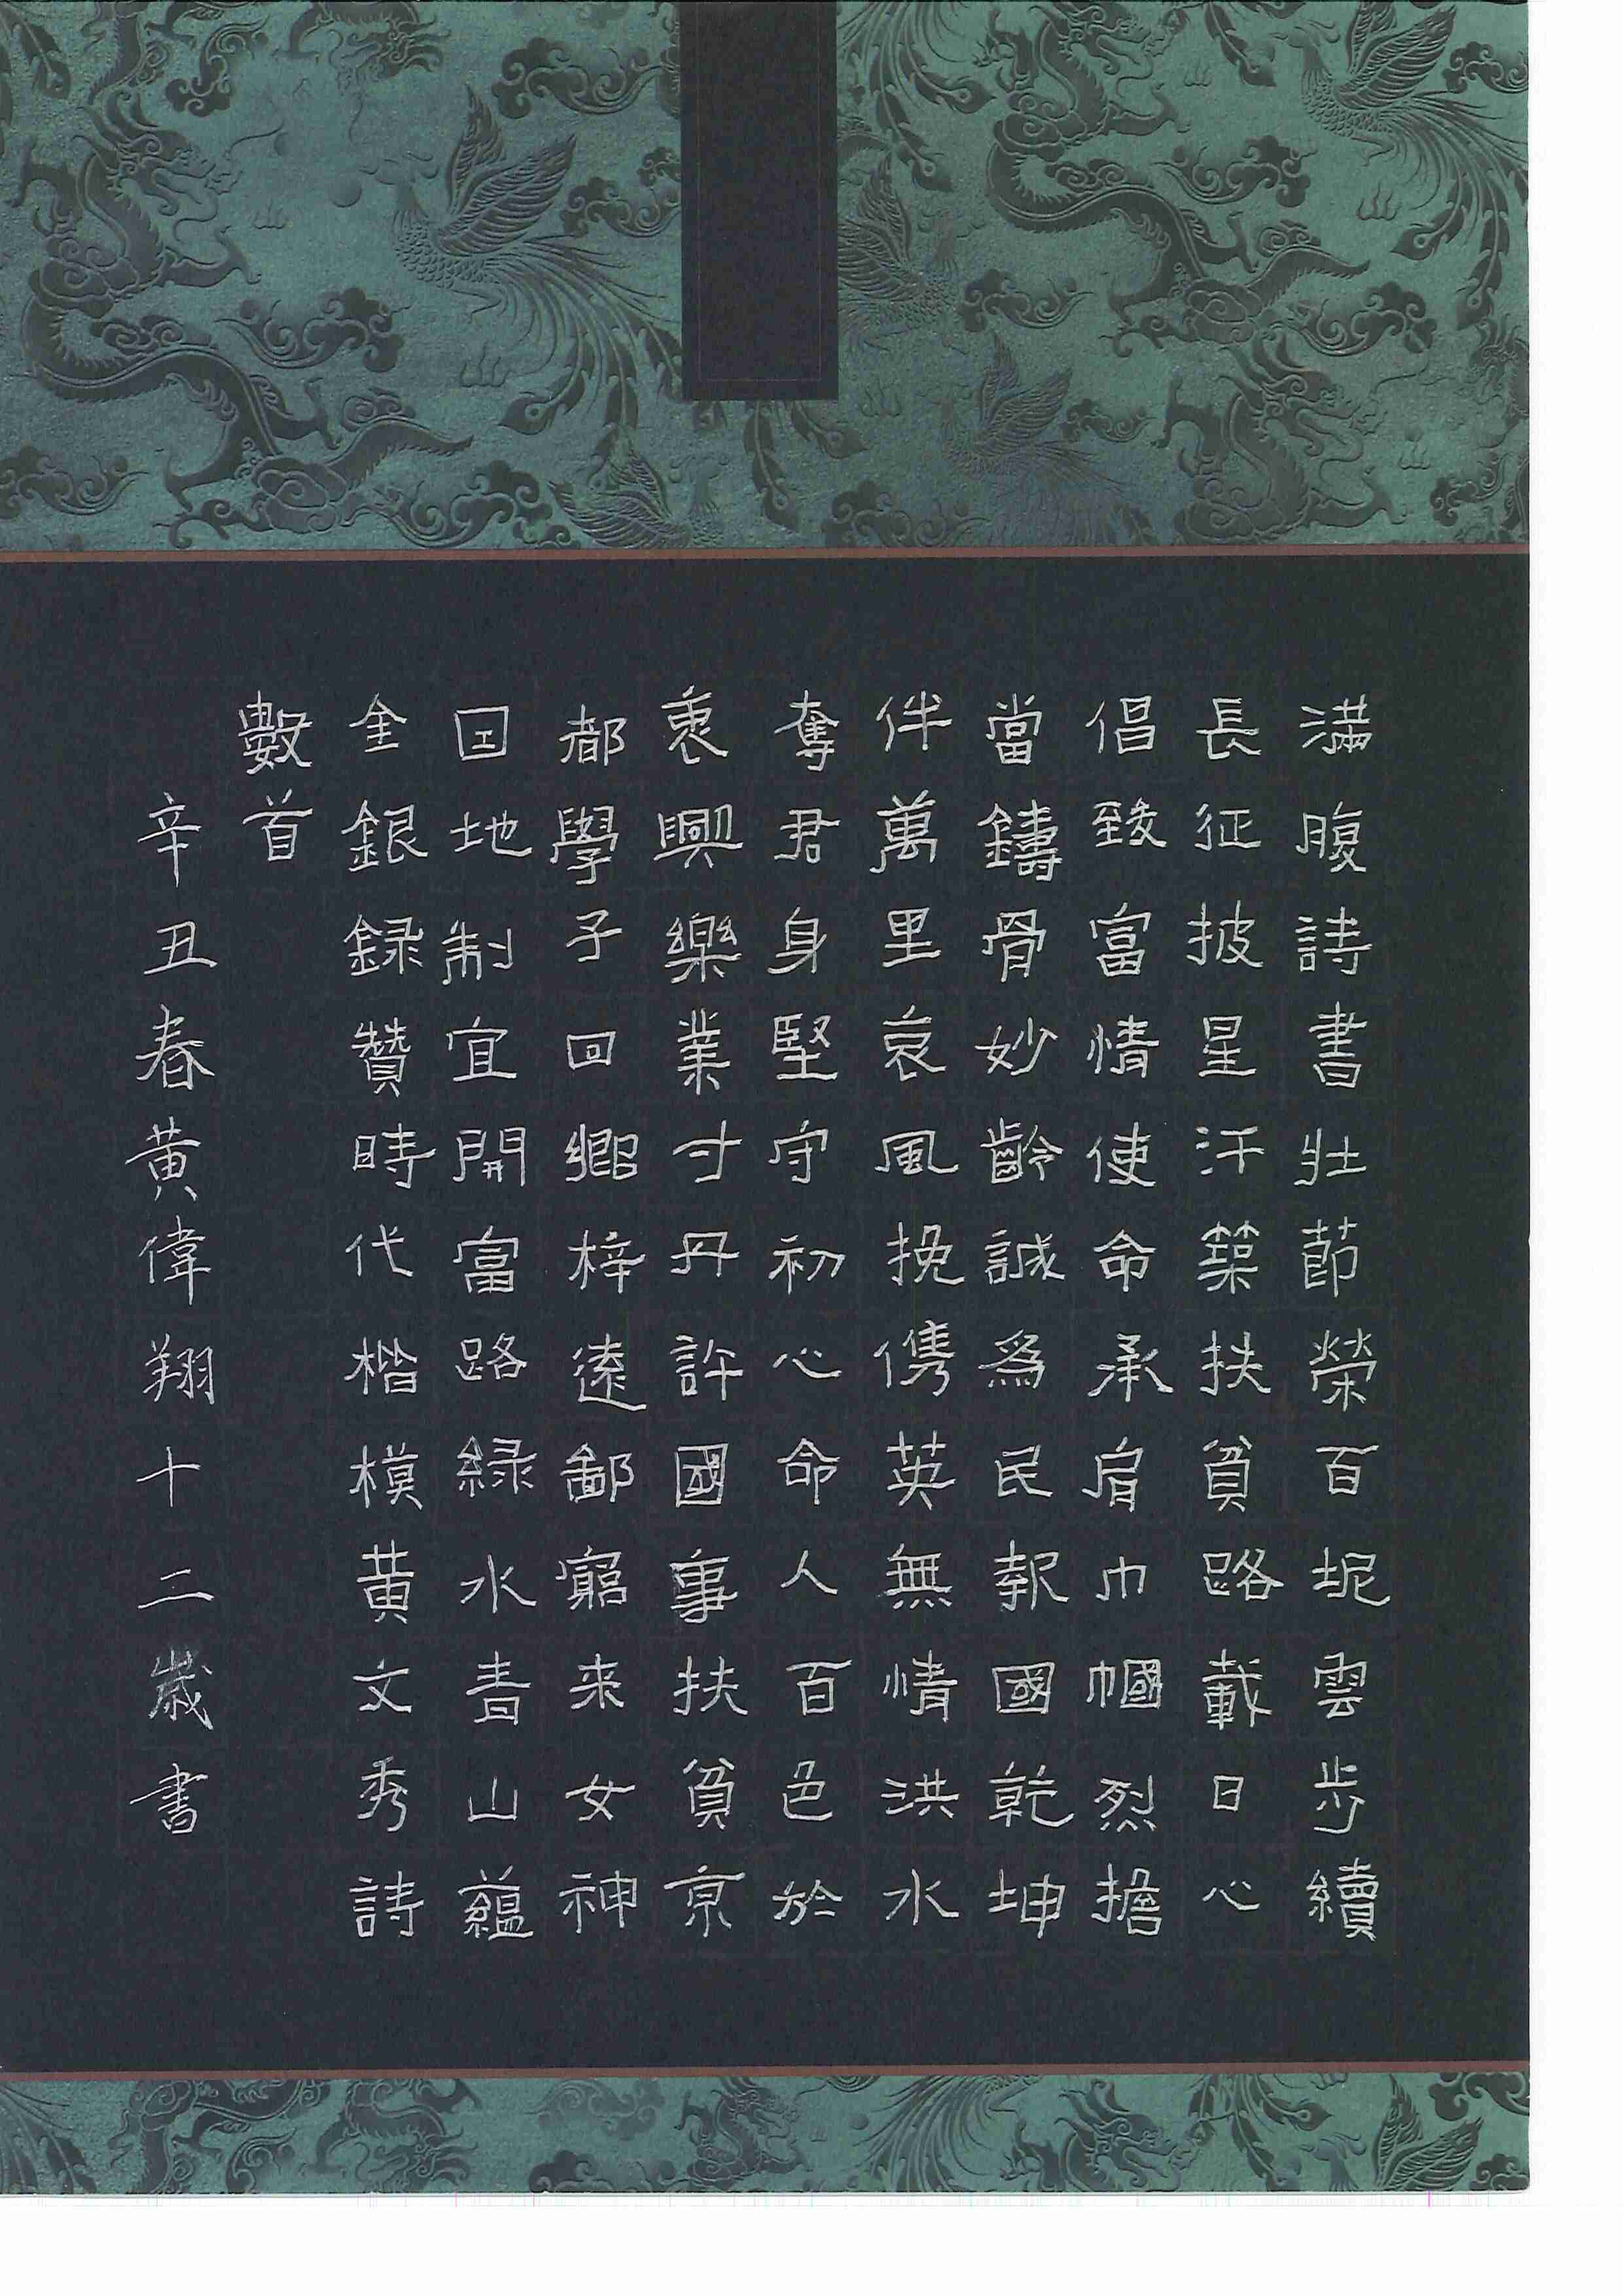 滿腹詩書壯節榮百坭雲步續
長征披星汗築扶貧路載日心
倡致富情使命承肩巾幗烈擔
當鑄骨妙齡誠爲民報國乾坤
伴萬里哀風挽儁英無情洪水
奪君身堅守初心命人百色於
衷興樂業寸丹許國事扶貧京
都學子回鄉梓遠鄙窮来女神
因地制宜開富路緑水青山蘊
金銀録贊時代楷模黄文秀詩
數首
辛丑春黄偉翔十二歲書